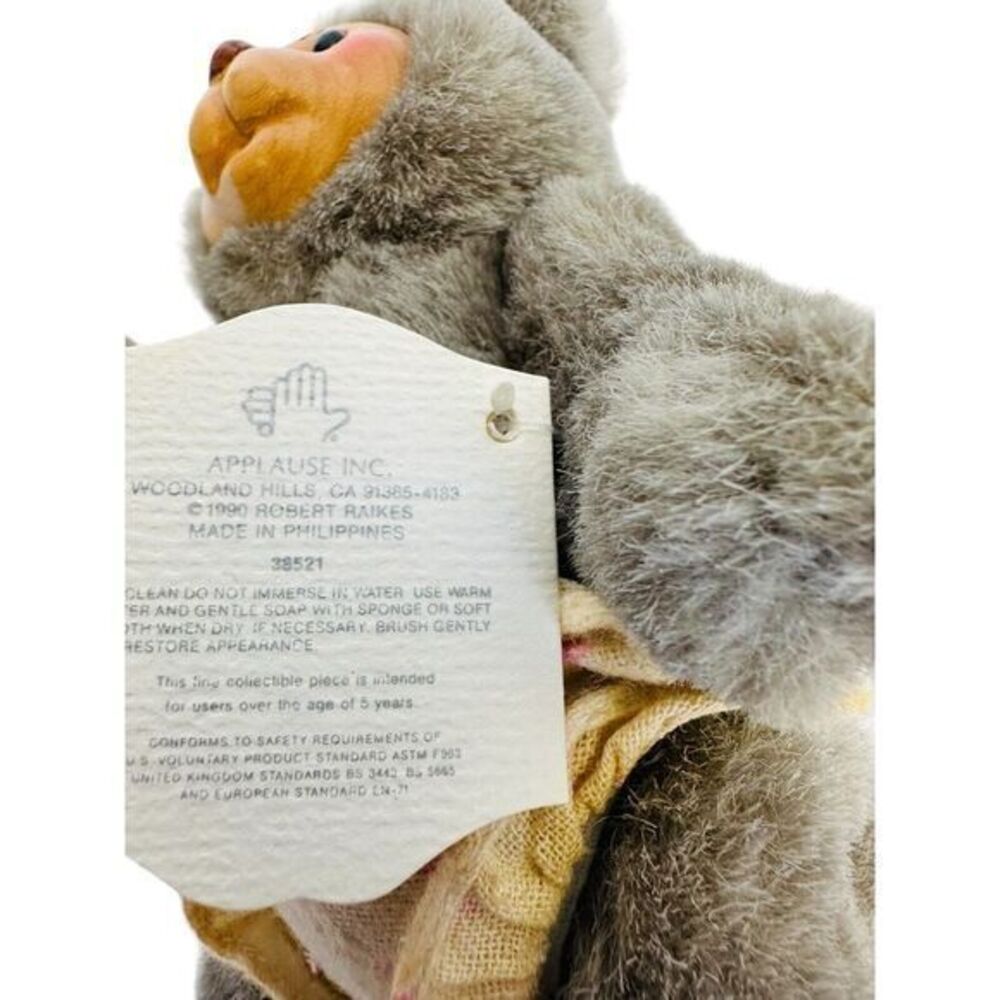 APPLAUSE INC.
WOODLAND HILLS, CA 91385-4183
© 1990 ROBERT RAIKES
MADE IN PHILIPPINES
38521
CLEAN DO NOT IMMERSE IN WATER. USE WARM
TER AND GENTLE SOAP WITH SPONGE OR SOFT
OTH WHEN DRY, IF NECESSARY, BRUSH GENTLY
RESTORE APPEARANCE
This fine collectible piece is intended
for users over the age of 5 years.
CONFORMS TO SAFETY REQUIREMENTS OF
U.S. VOLUNTARY PRODUCT STANDARD ASTM F963
UNITED KINGDOM STANDARDS BS 3443 BS 5665
AND EUROPEAN STANDARD EN-71